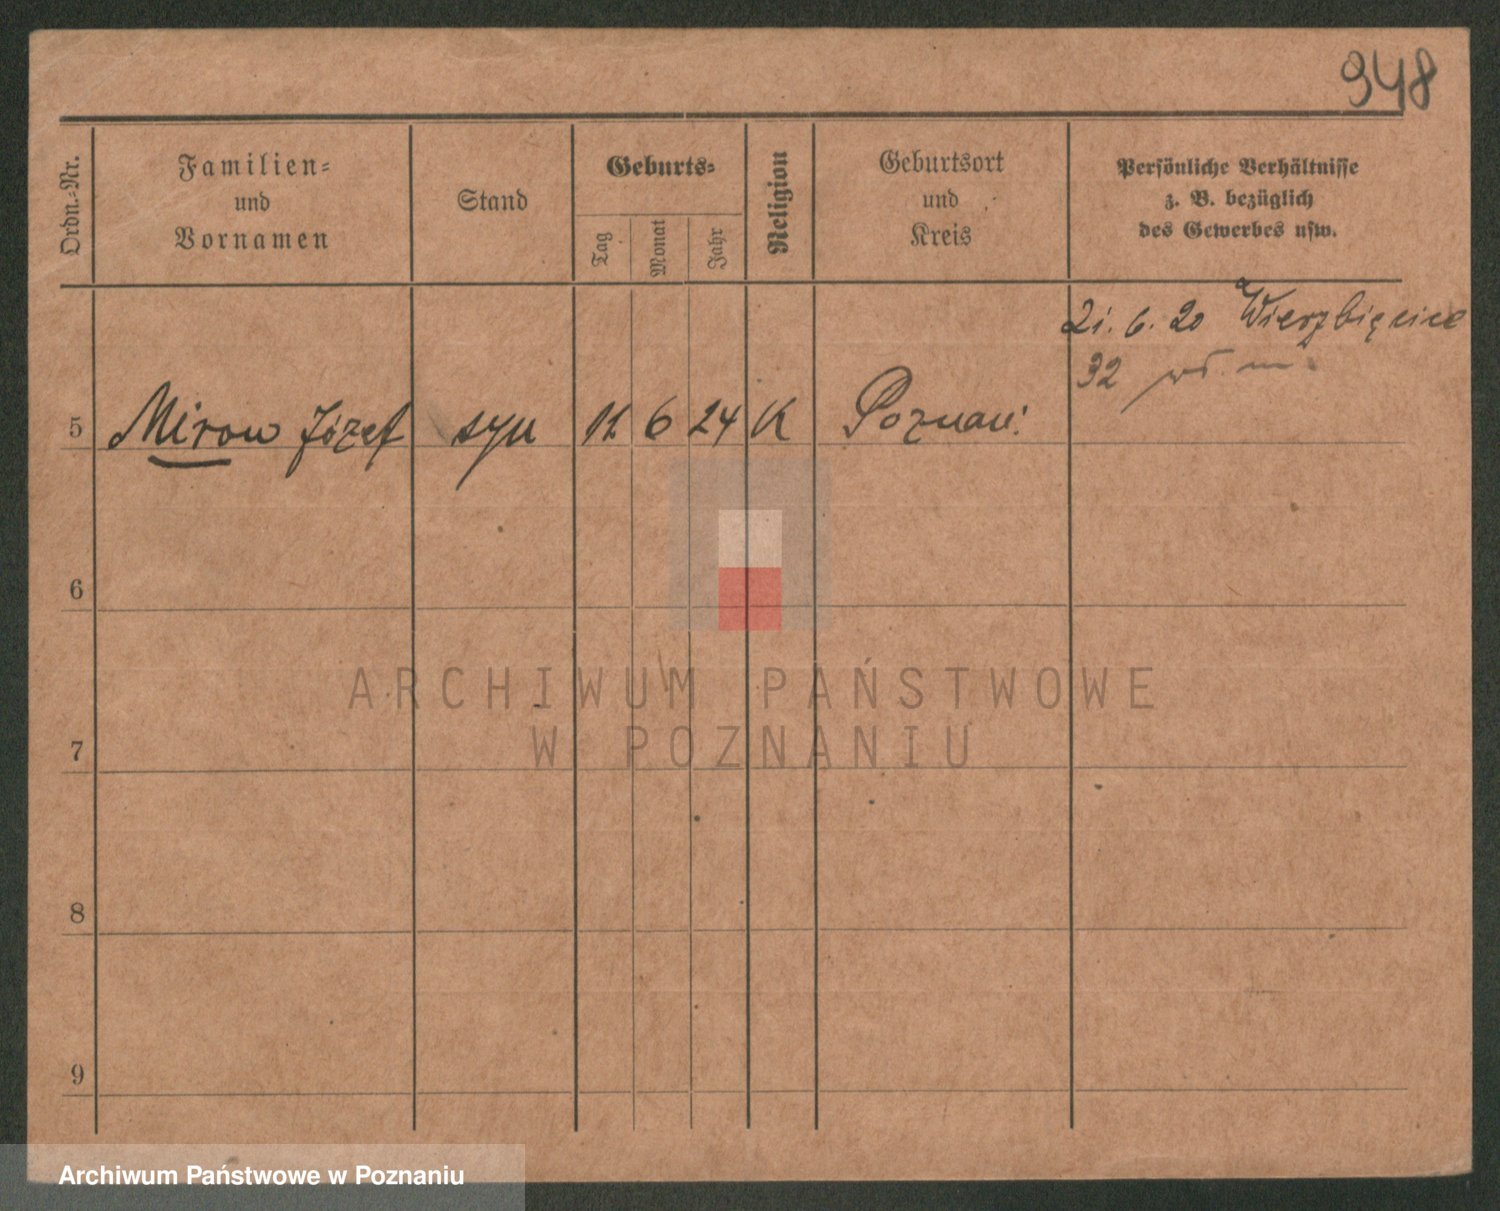 948
Ordn.-Nr.
Familien-
und
Vornamen
Stand
Geburts-
Tag
Monat
Jahr
Religion
Geburtsort
und
Kreis
Persönliche Verhältnisse
z. B. bezüglich
des Gewerbes usw.
21. 6. 20 Wierzbięcice
32
5 Mirow Józef syn 12 6 24 K Poznań
6
7
8
9
ARCHIWUM PAŃSTWOWE
W POZNANIU
Archiwum Państwowe w Poznaniu